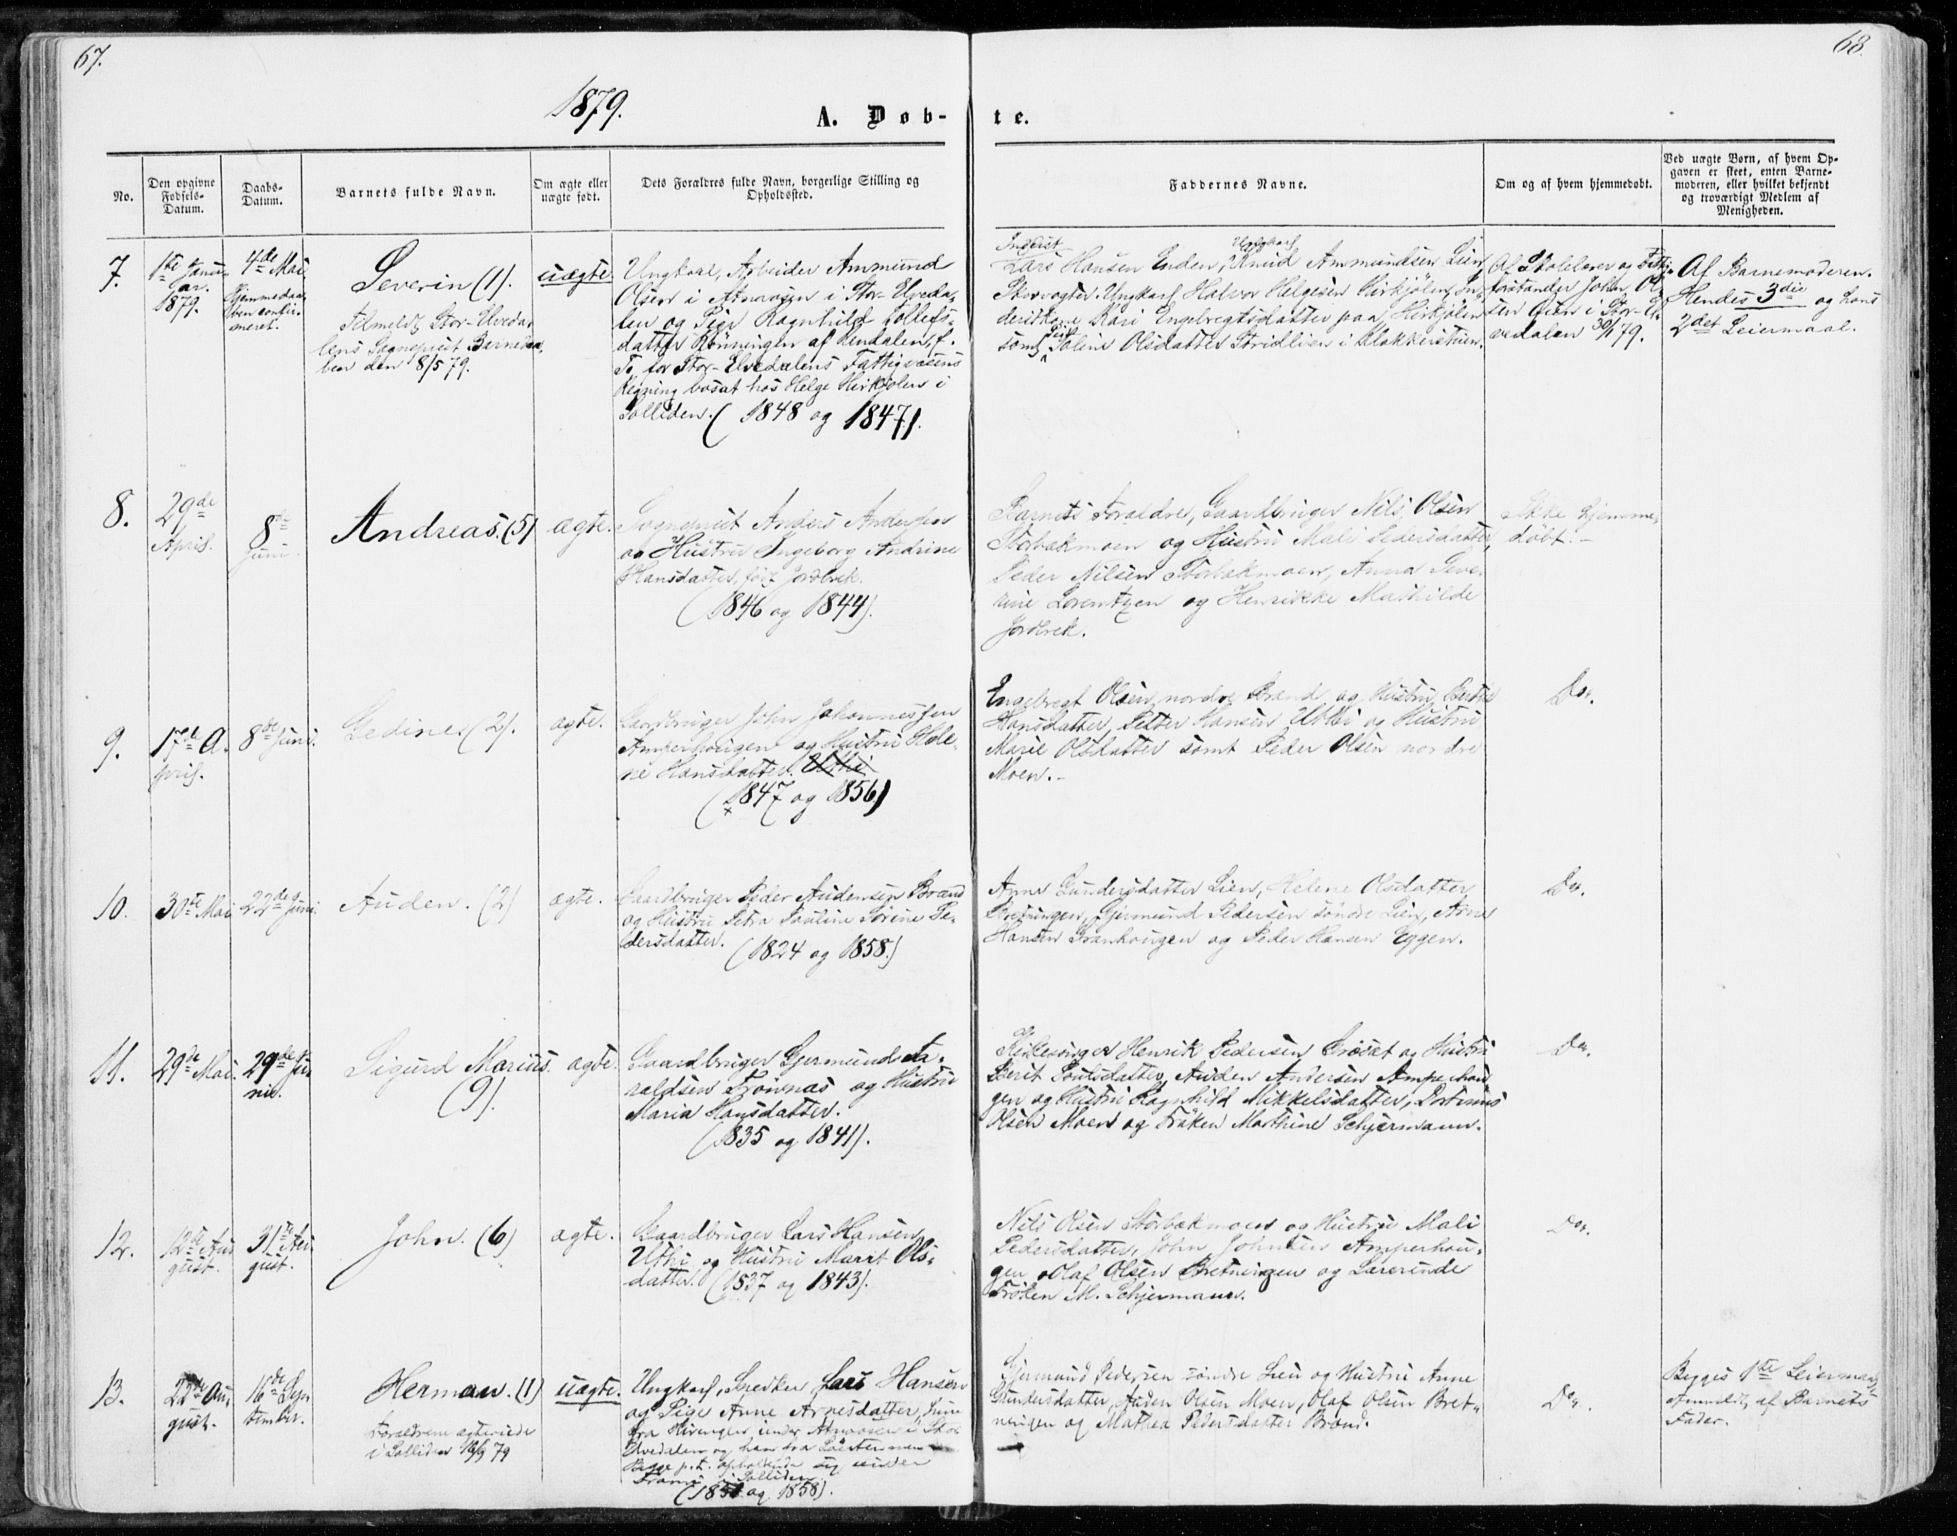 67.
68.
1879.
A. Døb-
te.
No.
Den opgivne
Fødsels-
Datum.
Daabs-
Datum.
Barnets fulde Navn.
Om ægte eller
uægte født.
Dets Forældres fulde Navn, borgerlige Stilling og
Opholdssted.
Faddernes Navne.
Om og af hvem hjemmedøbt.
Ved uægte Børn, af hvem Op-
gaven er skeet, enten Barne-
moderen, eller hvilket bekjendt
og troværdigt Medlem af
Menigheden.
7.
1ste Janu-
ar.
1879.
4de Mai
Hjemmedaa-
ben confir-
meret.
Severin (1).
Tilmeldt Stor-Elveda-
lens Sognepræst Barneda-
ben den 8/5 79.
uægte
Ungkarl, Arbeider Ammund
Olsen i Atneosen i Stor-Elveda-
len og Pige Ragnhild
datter Rønningen af Rendalen, f.
T. for Stor-Elvedalens Fattigvæsens
Regning bosat hos Helge Kirkjølen i
Solliden. (1848 og 1847).
Lars Hansen Enden, Ungkarl Knud Ammundsen Lien,
Skovvogter Ungkarl Halvor Helgesen Kirkjølen, In-
deristkone Kari Engebregtsdatter paa Kirkjølen
samt Pige Oline Olsdatter Stridlien i Klokkerstuen.
Af Skolelærer og Fattig-
forstander John Ol-
sen i Stor-El-
vedalen 30/1 79.
Af Barnemoderen.
Hendes 3die og hans
2det Leiermaal.
8.
29de
April.
8de
Juni.
Andreas. (5)
ægte.
Sognepræst Anders Andersen
og Hustru Ingeborg Andrine
Hansdatter, født Jordbrek.
(1846 og 1844).
Barnets Forældre, Gaardbruger Nils Olsen
Storbækmoen og Hustru Mali Pedersdatter,
Peder Nilsen Storbækmoen, Anna Seve-
rine Lorentzen og Henrikke Mathilde
Jordbrek.
Ikke hjemme-
døbt.-
9.
17de A-
pril.
8de Juni.
Ledine. (2).
ægte.
Gaardbruger John Johannessen
Amperhougen og Hustru Hele-
ne Hansdatter. Uthi
(1847 og 1856)
Engebregt Olsen nordre Brænd og Hustru Berthe
Hansdatter, Petter Hansen Uthi og Hustru
Marie Olsdatter samt Peder Olsen nordre
Moen.-
Do.
10.
30te Mai
22de Juni.
Auden. (2)
ægte.
Gaardbruger Peder Audensen Brænd
og Hustru Petra Pauline Sørine Pe-
dersdatter.
(1824 og 1858.)
Anne Gundersdatter Lien, Helene Olsdatter
Bretningen, Gjermund Pedersen søndre Lien, Arne
Hansen Granhougen og Peder Hansen Eggen.
Do.
11.
29de Mai.
29de Ju-
ni.
Sigurd Marius
(9).
ægte.
Gaardbruger Gjermund Ha-
raldsen Frøivnæs og Hustru
Maria Hansdatter.
(1835 og 1841).
Kirkesanger Henrik Pedersen Bræset og Hustru
Berit Poulsdatter, Auden Andersen Amperhou-
gen og Hustru Ragnhild Mikkelsdatter,
Olsen Moen og Frøken Marthine Schjermann.
Do.
12.
12te Au-
gust.
31te Au-
gust.
John. (6)
ægte.
Gaardbruger Lars Hansen
Uthi og Hustru Marit Ols-
datter. (1837 og 1843).
Nils Olsen Storbækmoen og Hustru Mali
Pedersdatter, John Johnsen Amperhou-
gen, Olaf Olsen Bretningen og Lærerinde
Frøken M. Schjermann.
Do.
13.
22de Au-
gust.
16de Sep-
tember.
Herman. (1)
Forældrene ægteviede
i Solliden 79
uægte.
Ungkarl, Snedker Lars Hansen
og Pige Anne Arnesdatter, hun
fra under Atneosen i Stor-
Elvedalen og han fra
Begge p.t. opholdende sig under
i Solliden
(1851 og 1858).
Gjermund Pedersen søndre Lien og Hustru Anne
Gundersdatter, Auden Olsen Moen, Olaf Olsen Bret-
ningen og Mathea Pedersdatter Brænd.
Do.
Begges 1ste Leiermaal
Anmeldt af Barnets
Fader.